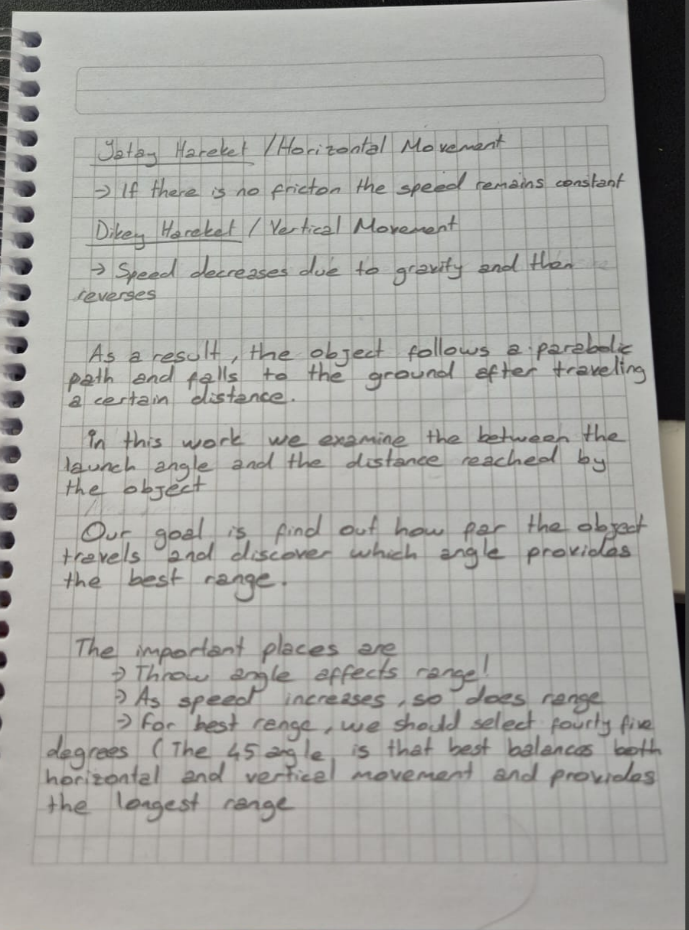 Yatay Hareket / Horizontal Movement
→ If there is no fricton the speed remains constant
Dikey Hareket / Vertical Movement
→ Speed decreases due to gravity and then
reverses
As a result, the object follows a parabolic
path and falls to the ground after traveling
a certain distance.
in this work we examine the between the
launch angle and the distance reached by
the object
Our goal is find out how far the object
travels and discover which angle provides
the best range.
The important places are
→ Throw angle affects range!
→ As speed increases, so does range
→ For best range, we should select fourty five
degrees (The 45 angle is that best balances both
horizontal and vertical movement and provides
the longest range